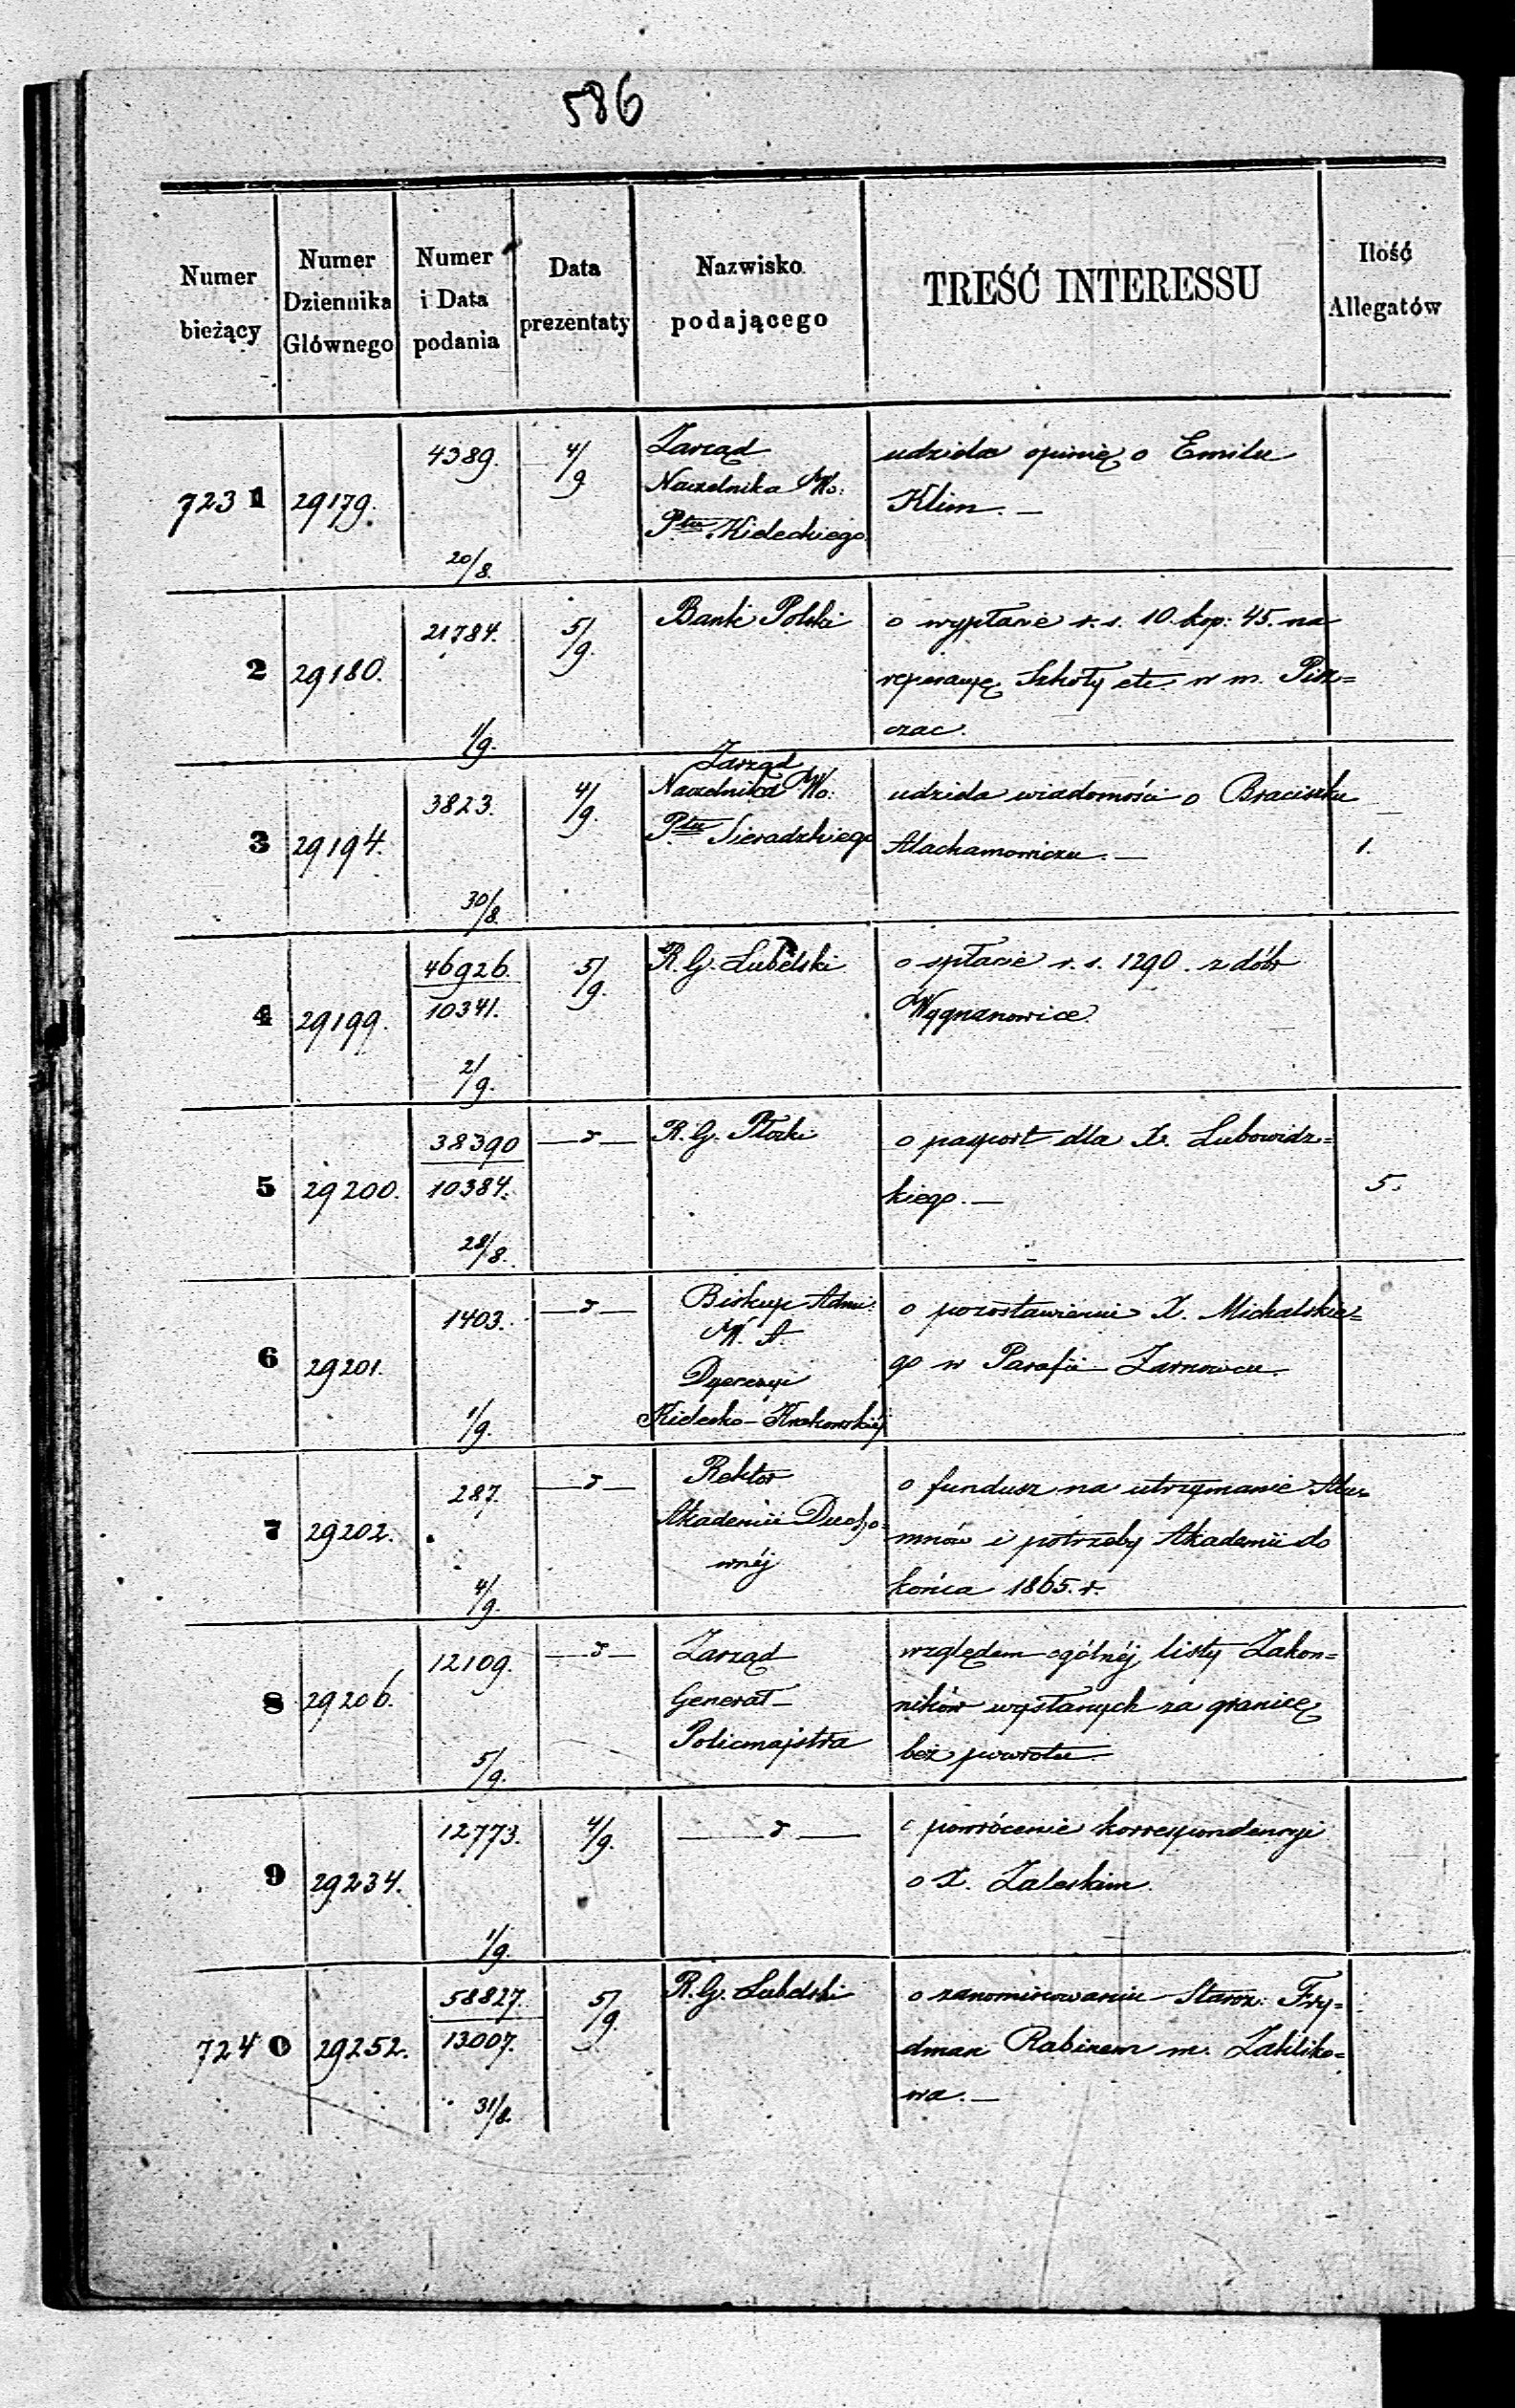 586
Numer bieżący
Numer Dziennika Głównego
Numer i Data podania
Data prezentaty
Nazwisko podającego
TREŚĆ INTERESSU
Ilość Allegatów
7231 29179. 4389. 20/8. 4/9
Zarząd
Naczelnika Wo:
Ptu Kieleckiego
udziela opinię o Emilu
Klim. —
2 29180. 21784. 1/9. 5/9.
Bank Polski
o wypłacie r. s. 10. kop: 45. na
reperacyę Szkoły etc. w m. Pisz=
czac.
3 29194. 3823. 30/8. 4/9.
Zarząd
Naczelnika Wo:
Ptu Sieradzkiego
udziela wiadomości o Braciszku
Alachamowiczu. —
1.
4 29199. 46926. 10341. 2/9. 5/9.
R. G. Lubelski
o spłacie r. s. 1290. z dóbr
Wygnanowice.
5 29200. 38390 10384. 28/8. — d —
R. G. Płocki
o pasport dla X. Lubowidz=
kiego. —
5.
6 29201. 1403. 1/9. — d —
Biskup Admi:
M. A.
Dyecezyi
Kielecko-Krakowskiéj
o pozostawieniu X. Michalskie=
go w Parafii Żarnowcu.
7 29202. 287. 4/9. — d —
Rektor
Akademii Ducho=
wnéj
o fundusz na utrzymanie Alu=
mnów i potrzeby Akademii do
końca 1865. r.
8 29206. 12109. 5/9. — d —
Zarząd
Generał-
Policmajstra
względem ogólnéj listy Zakon=
ników wysłanych za granicę
bez powrotu.
9 29234. 12773. 1/9. 4/9. — d —
o powrócenie korrespondencyi
o X. Zaleskim.
7240 29252. 58827. 13007. 31/8. 5/9.
R. G. Lubelski
o zanominowaniu Staroz: Fry=
dman Rabinem m. Zakliko=
wa. —